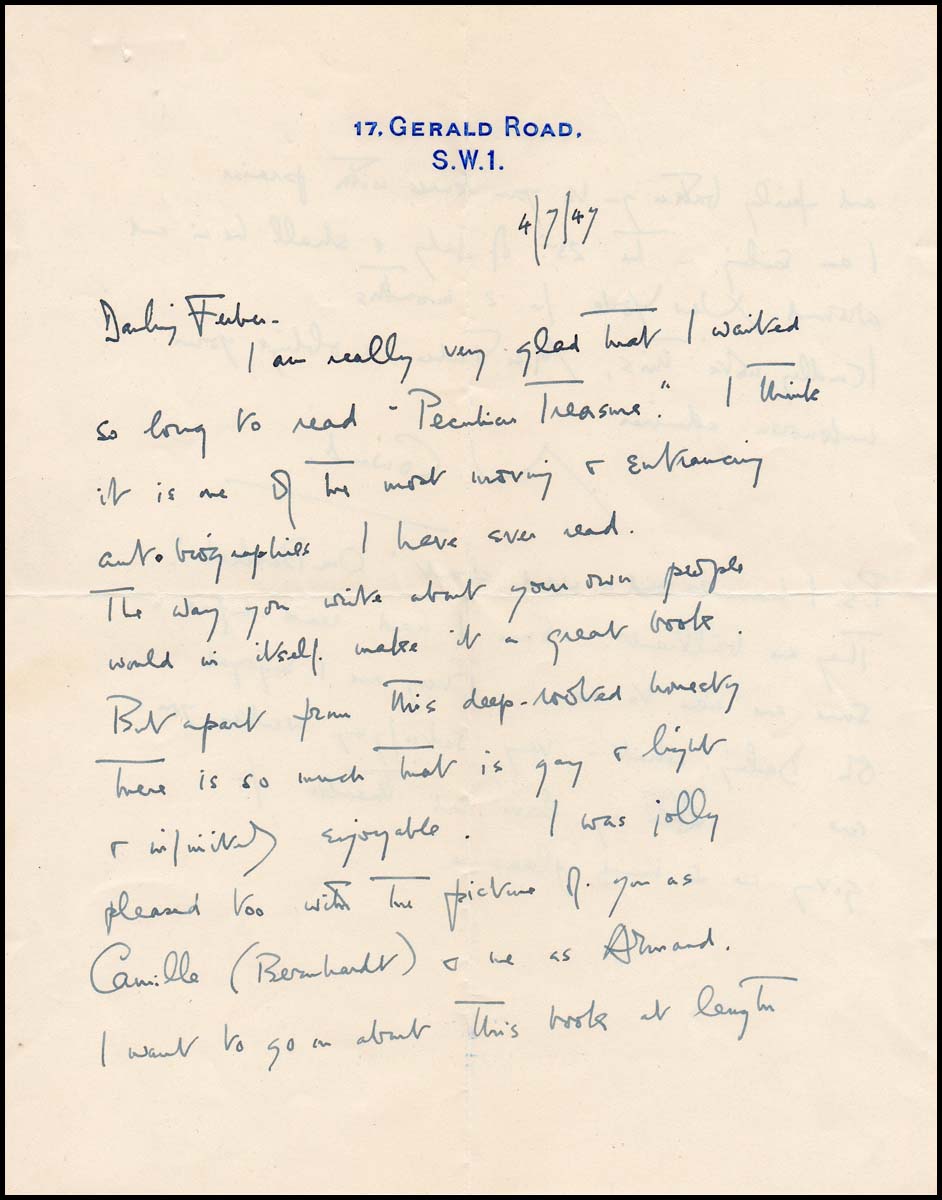 17, GERALD ROAD,
S.W.1.
4/7/47
Darling Ferber.
I am really very glad that I waited
so long to read "Peculiar Treasure". I think
it is one of the most moving & entrancing
autobiographies I have ever read.
The way you write about your own people
would in itself make it a great book.
But apart from this deep-rooted honesty
there is so much that is gay & light
& infinitely enjoyable. I was jolly
pleased too with the picture of you as
Camille (Bernhardt) & me as Armand.
I want to go on about this book at length